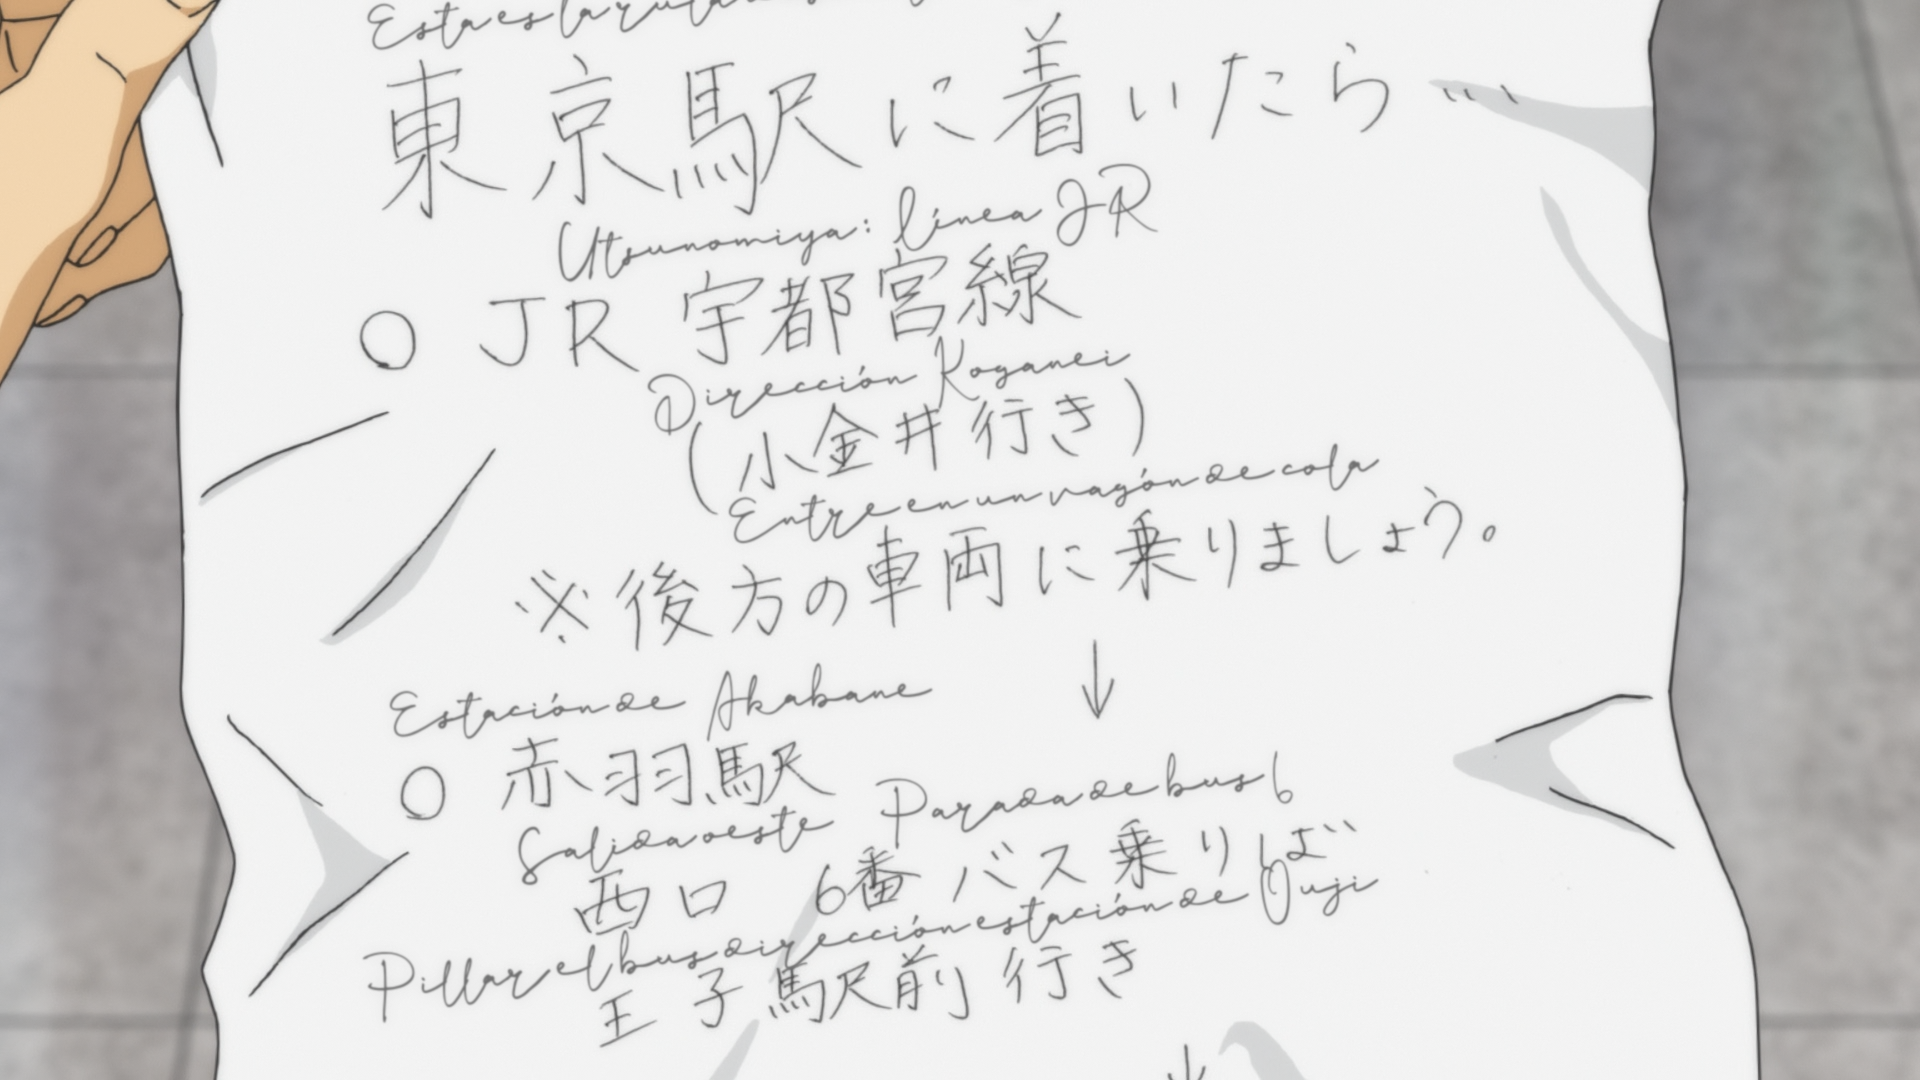 Esta es la ruta
東京駅に着いたら…
Utsunomiya: línea JR
○ JR 宇都宮線
Dirección Koganei
(小金井行き)
Entre en un vagón de cola
※後方の車両に乗りましょう。
↓
Estación de Akabane
○ 赤羽駅
Salida oeste Parada de bus 6
西口 6番バス乗りば
Pillar el bus dirección estación de Ouji
王子駅前行き
↓